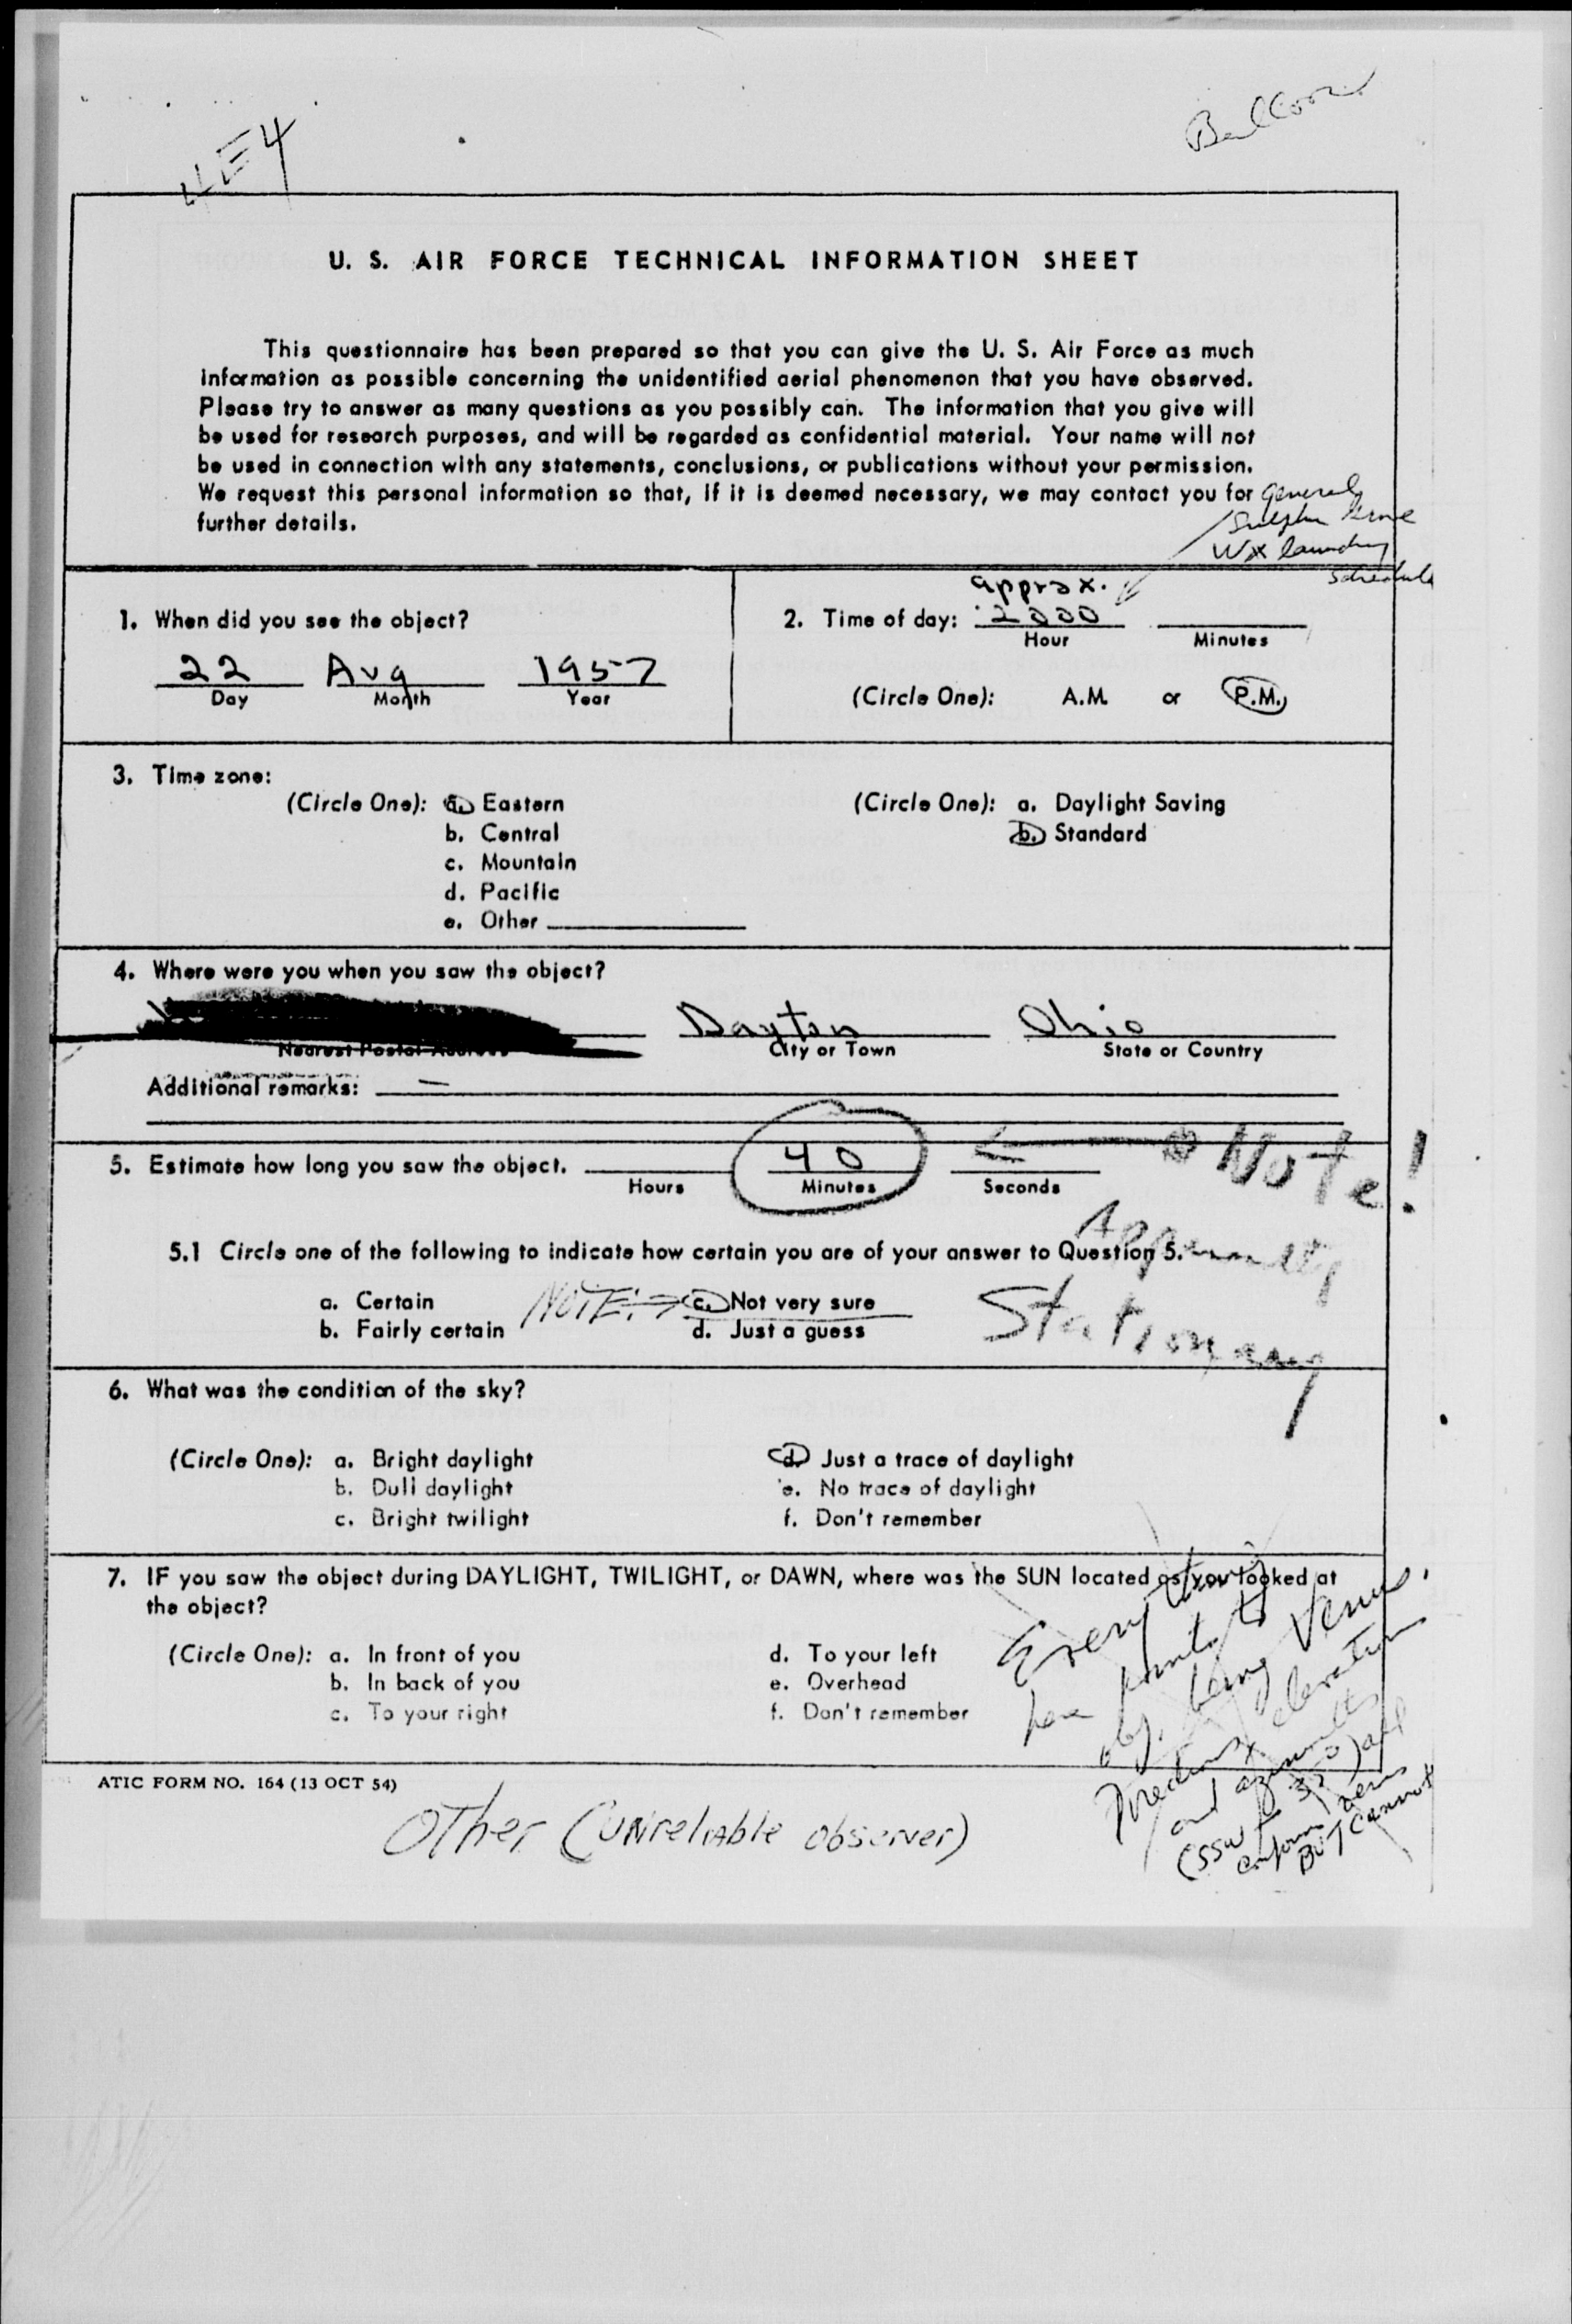 Balloon
U. S. AIR FORCE TECHNICAL INFORMATION SHEET
This questionnaire has been prepared so that you can give the U. S. Air Force as much
information as possible concerning the unidentified aerial phenomenon that you have observed.
Please try to answer as many questions as you possibly can. The information that you give will
be used for research purposes, and will be regarded as confidential material. Your name will not
be used in connection with any statements, conclusions, or publications without your permission.
We request this personal information so that, if it is deemed necessary, we may contact you for
further details.
General
Wx
schedule
1. When did you see the object?
22 Aug 1957
Day Month Year
approx.
2. Time of day: 2000
Hour Minutes
(Circle One): A.M. or P.M.
3. Time zone:
(Circle One): a. Eastern
b. Central
c. Mountain
d. Pacific
e. Other
(Circle One): a. Daylight Saving
b. Standard
4. Where were you when you saw the object?
Dayton Ohio
Nearest Postal Address City or Town State or Country
Additional remarks: —
5. Estimate how long you saw the object. 40
Hours Minutes Seconds
Note!
Apparently
Stationary
5.1 Circle one of the following to indicate how certain you are of your answer to Question 5.
a. Certain
b. Fairly certain
NOTE:
c. Not very sure
d. Just a guess
6. What was the condition of the sky?
(Circle One): a. Bright daylight
b. Dull daylight
c. Bright twilight
d. Just a trace of daylight
e. No trace of daylight
f. Don't remember
7. IF you saw the object during DAYLIGHT, TWILIGHT, or DAWN, where was the SUN located as you looked at
the object?
(Circle One): a. In front of you
b. In back of you
c. To your right
d. To your left
e. Overhead
f. Don't remember
Everything
here points to
obj. being Venus.
elevation
and azimuth
(SSW
BUT cannot
ATIC FORM NO. 164 (13 OCT 54)
OTher (UNreliable observer)